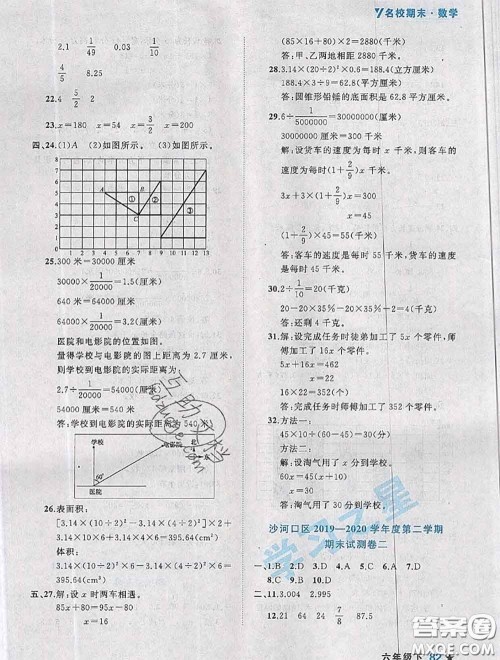 名校期末·数学
2.1 1/49 0.03
4/3 8.25
22.4 5/2
23.x=180 x=54 x=3/2 x=175
四、24.(1)A (2)如图所示。 (3)如图所示。
8
7
6
5
4
3
2
1
0 1 2 3 4 5 6 7 8 9 10 11 12 13
A B C ① ② ③
25.300 米=30000 厘米
30000×1/20000=1.5(厘米)
640 米=64000 厘米
64000×1/20000=3.2(厘米)
医院和电影院的位置如图。
量得学校与电影院的图上距离为 2.7 厘米,
则学校到电影院的实际距离为:
2.7÷1/20000=54000(厘米)
54000 厘米=540 米
答:学校到电影院的实际距离为 540 米。
学校
电影院
医院
26.表面积:
[3.14×(10÷2)²×10+3.14×(10÷2)²×4×
3+3.14×(6÷2)²×4]×1/3=395.64(cm²)
体积:
[3.14×(10÷2)²×10+3.14×(10÷2)²×4×
3+3.14×(6÷2)²×4]×1/3=395.64(cm³)
五、27.解:设再过 x 时两车相遇。
85x+80x=165×16
x=16
(85×16+80)×2=2880(千米)
答:甲、乙两地相距 2880 千米。
28.3.14×(20÷2)²×0.6=188.4(立方厘米)
188.4×3÷9=62.8(平方厘米)
答:圆锥形铅锤的底面积是 62.8 平方厘米。
29.6÷1/5000000=30000000(厘米)
30000000 厘米=300 千米
解:设货车的速度为每时 x 千米,则客车的
速度为每时(1+2/9)x 千米。
3x+3×(1+2/9)x=300
x=45
(1+2/9)×45=55(千米)
答:客车的速度是每时 55 千米,货车的速度
是每时 45 千米。
30.2÷1/10=20(千克)
20-20×35%-20×2/5=4(千克)
答:还剩 4 千克。
31.解:设完成任务时徒弟加工了 5x 个零件,
师傅加工了 16x 个零件。
5x+242=16x
x=22
16×22=352(个)
答:完成任务时师傅加工了 352 个零件。
32.方法一:
解:设淘气用了 x 分到学校。
x=30
答:淘气用了 30 分到学校。
方法二:
沙河口区 2019—2020 学年度第二学期
期末试测卷二
一、1.B 2.D 3.C 4.D 5.A 6.C 7.A
8.D 9.B 10.A
二、11.3.004 2.995
12.16 21 64 24 7/8 87.5
学习之星
六年级下 82